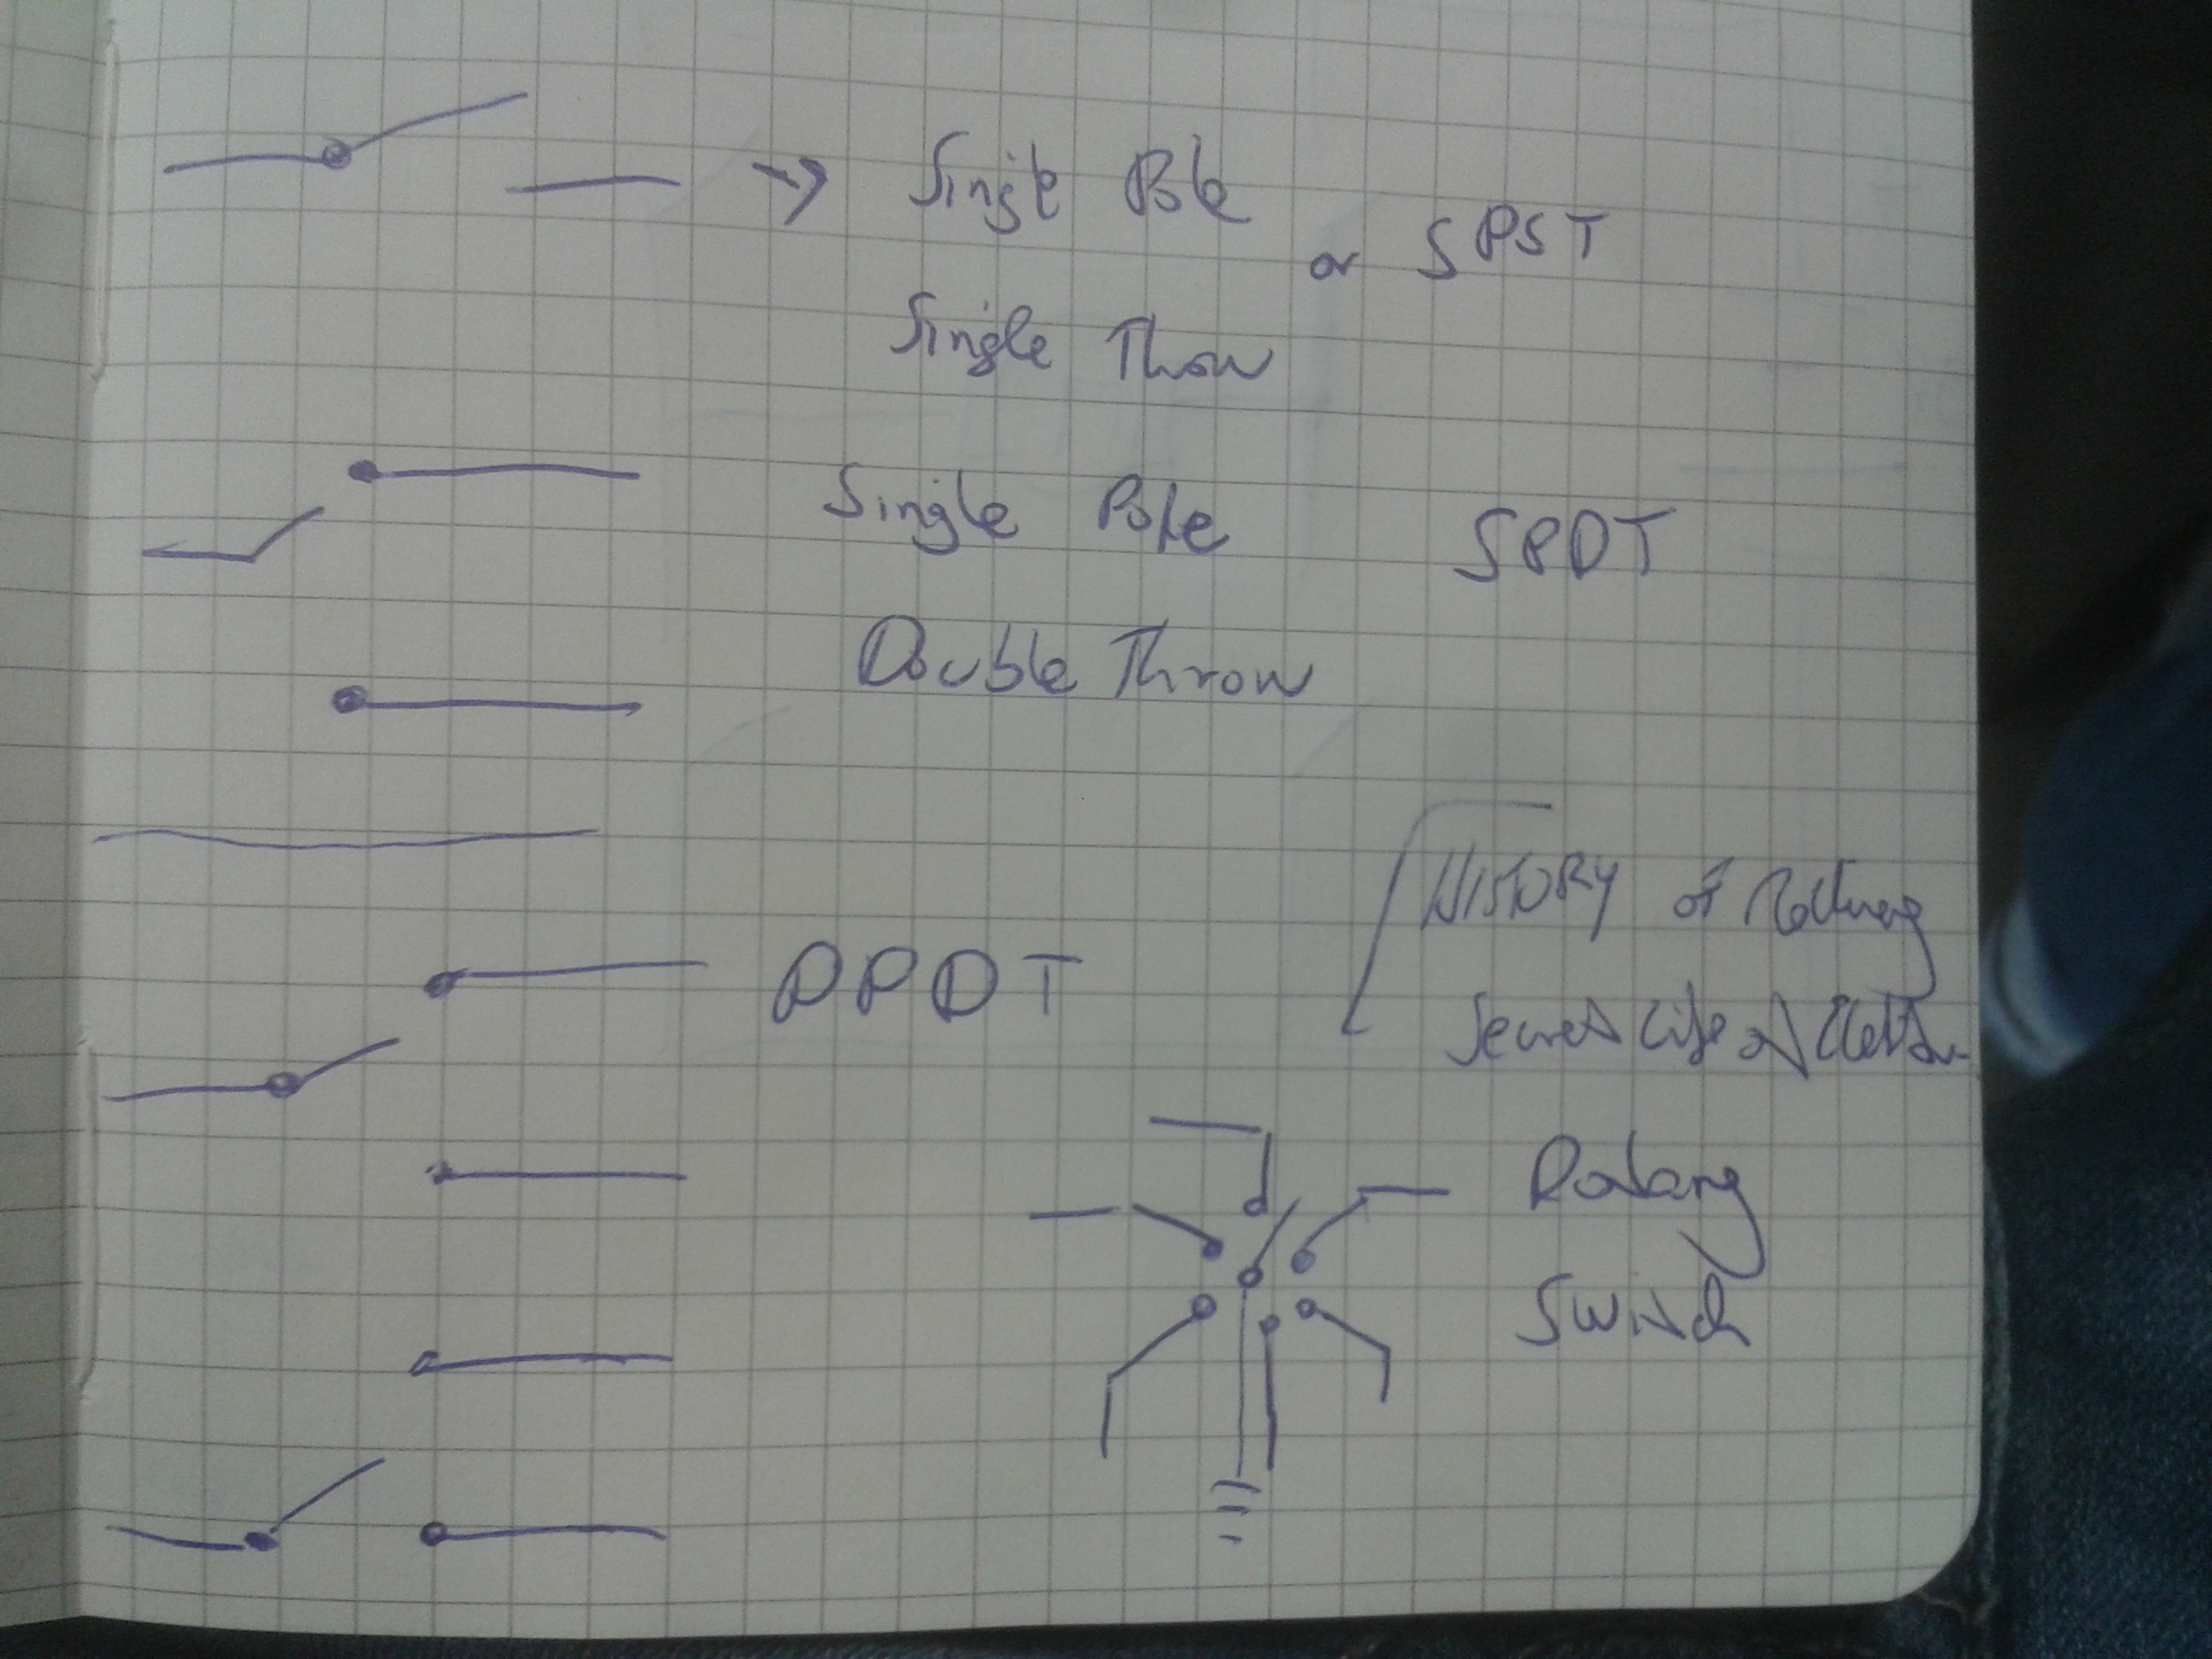 → Single Pole
or SPST
Single Throw
Single Pole SPDT
Double Throw
HISTORY of
DPDT
Secret Life of
Rotary
Switch